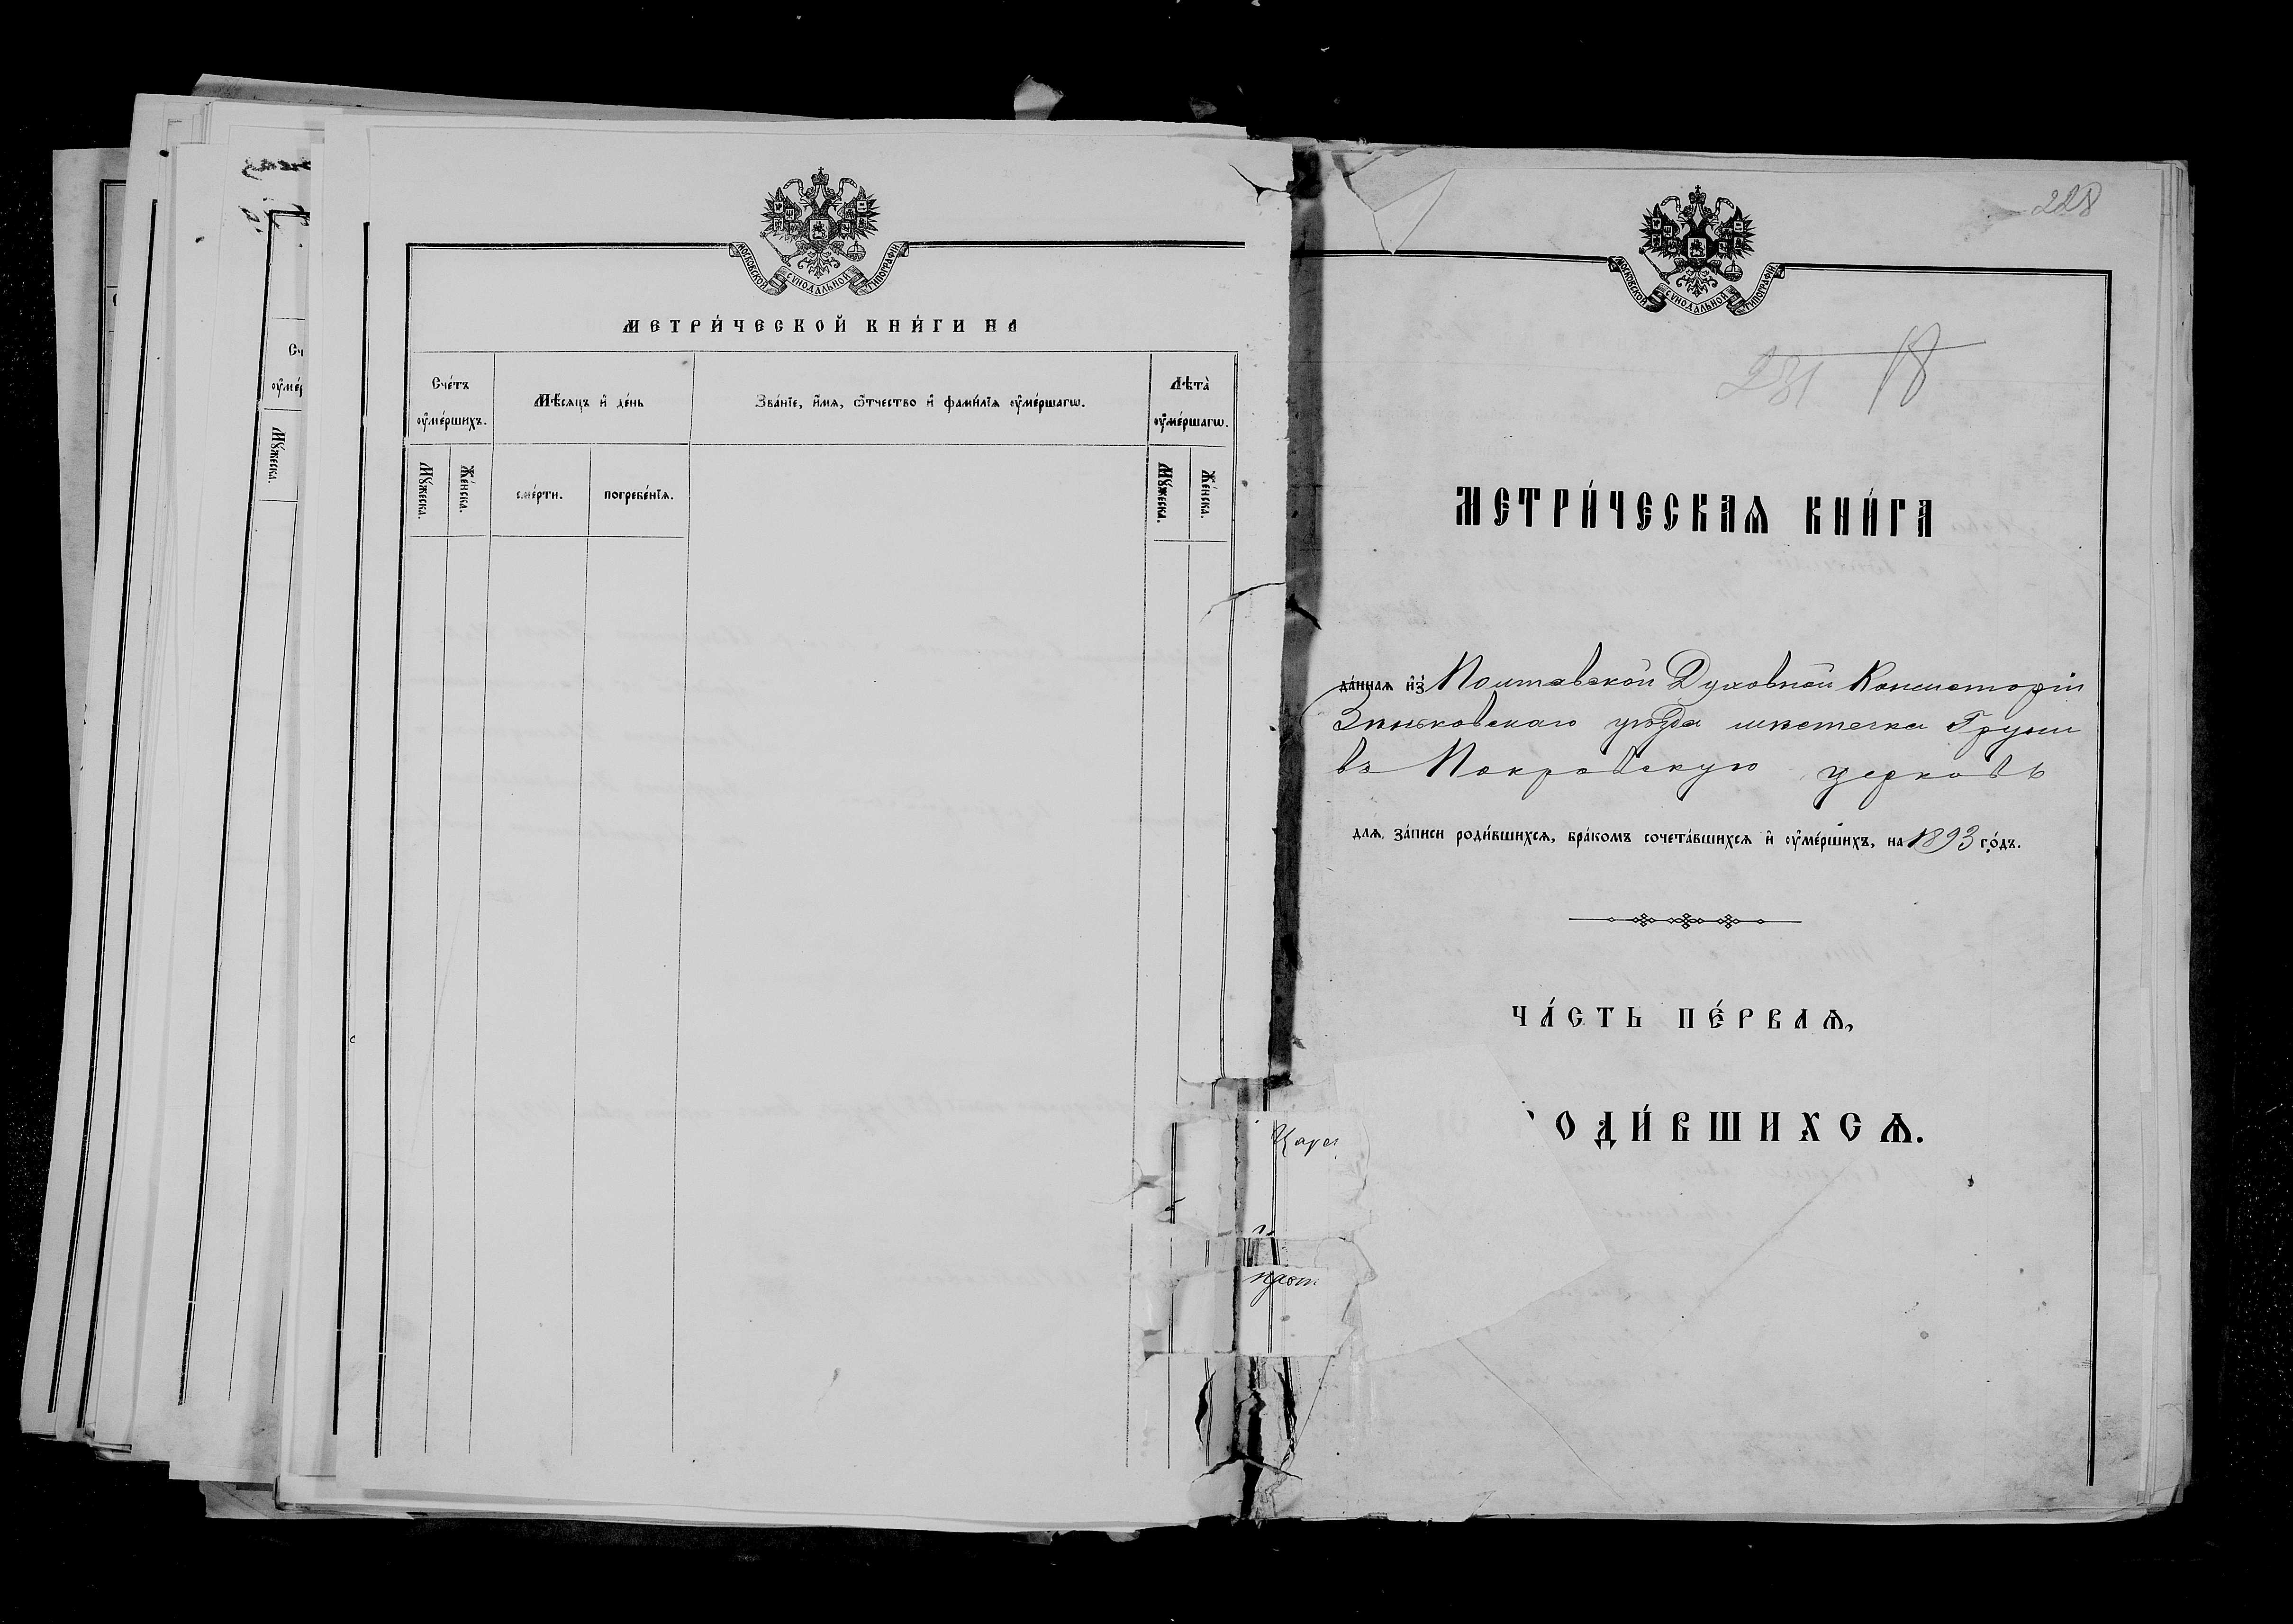 МОСКОВСКОЙ СУНОДАЛЬНОЙ ТИПОГРАФІИ
МЕТРИ́ЧЕСКОЙ КНИ́ГИ НА
Сче́тъ оу҆ме́ршихъ.
Мѣ́сяцъ и҆ де́нь
Зва́нїе, и҆́мя, ѻ҆́тчество и҆ фами́лїя оу҆ме́ршагѡ.
Лѣта̀ оу҆ме́ршагѡ.
Мꙋ́жеска.
Же́нска.
сме́рти.
погребе́нїя.
Мꙋ́жеска.
Же́нска.
Мꙋ́жеска.
228
МОСКОВСКОЙ СУНОДАЛЬНОЙ ТИПОГРАФІИ
231 18
МЕТРИ́ЧЕСКАѦ КНИ́ГА
да́ннаѧ и҆з̾ Полтавской Духовной Консисторіи
Зѣньковскаго уѣзда мѣстечка Груни
въ Покровскую церковь
длѧ за́писи роди́вшихсѧ, бра́комъ сочета́вшихсѧ и҆ оу҆ме́ршихъ, на 1893 го́дъ.
ЧА́СТЬ ПЕ́РВАѦ,
ОДИ́ВШИХСѦ.